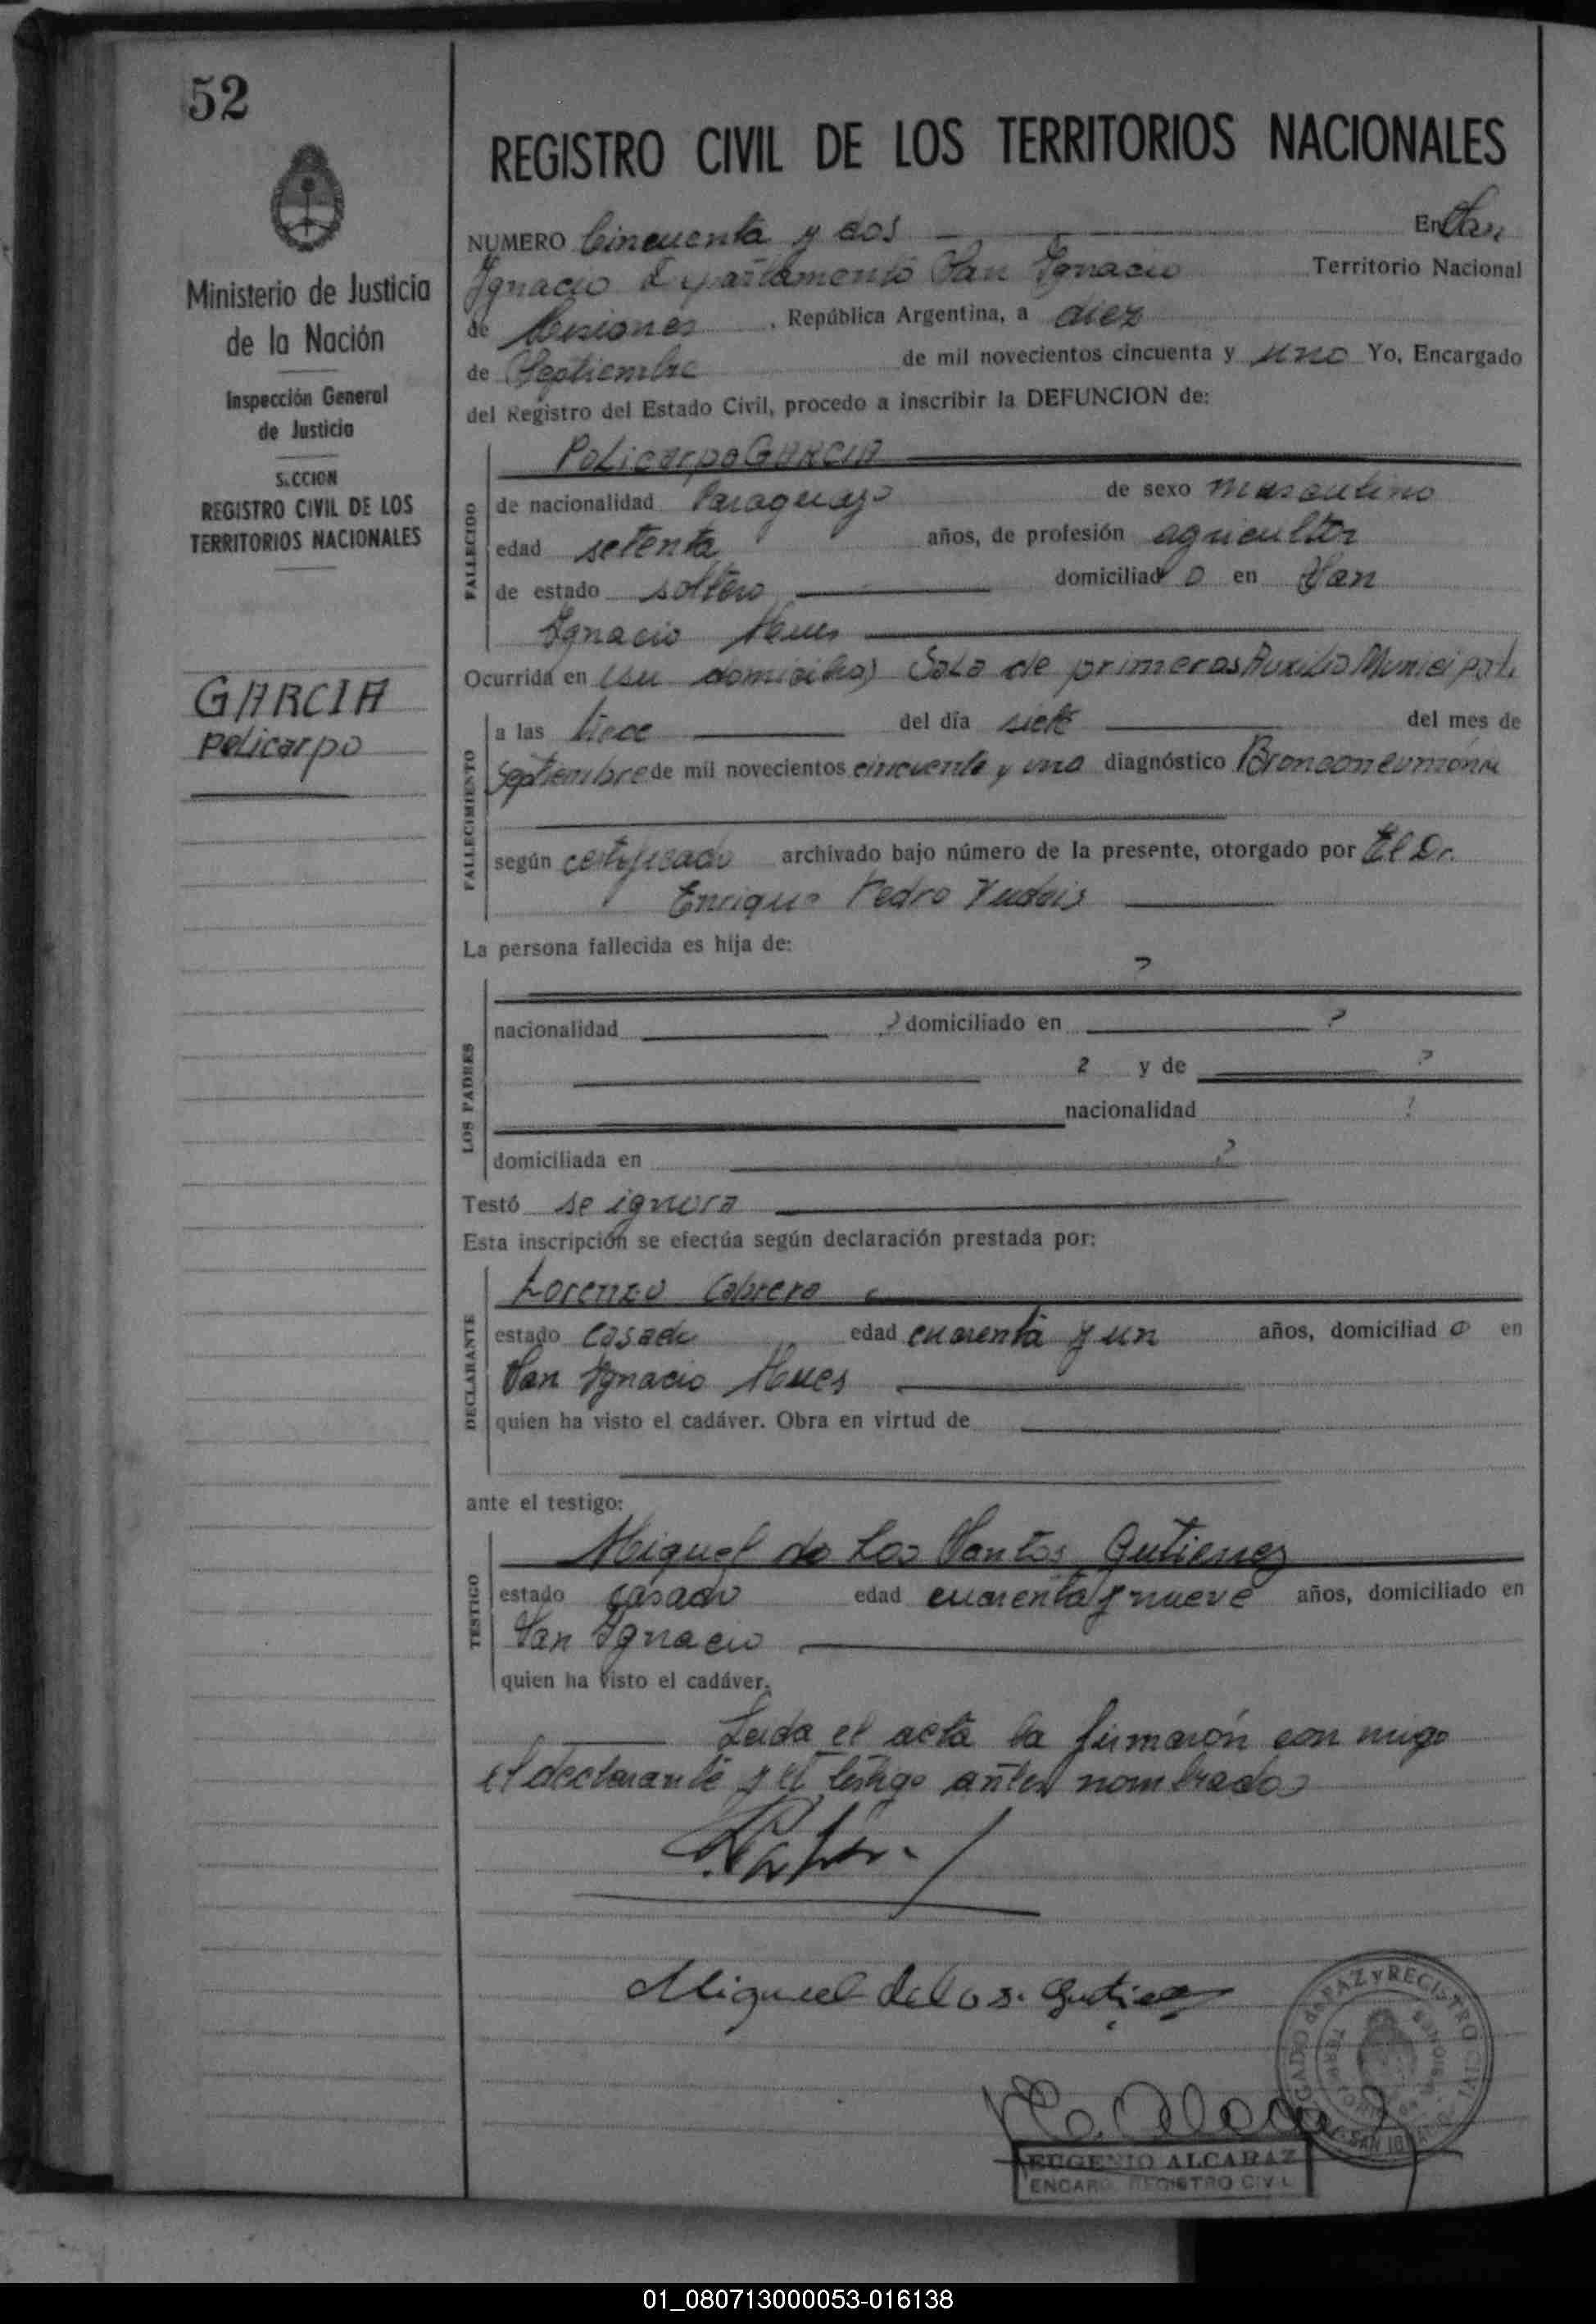 52
Ministerio de Justicia
de la Nación
Inspección General
de Justicia
S.CCION
REGISTRO CIVIL DE LOS
TERRITORIOS NACIONALES
GARCIA
Policarpo
REGISTRO CIVIL DE LOS TERRITORIOS NACIONALES
NUMERO Cincuenta y dos En San
Ignacio Departamento San Ignacio Territorio Nacional
de Misiones, República Argentina, a diez
de Septiembre de mil novecientos cincuenta y uno Yo, Encargado
del Registro del Estado Civil, procedo a inscribir la DEFUNCION de:
FALLECIDO
Policarpo GARCIA
de nacionalidad Paraguayo de sexo masculino
edad setenta años, de profesión agricultor
de estado soltero domiciliad o en San
Ignacio Mnes
Ocurrida en (su domicilio) Sala de primeros Auxilio Municipal
FALLECIMIENTO
a las trece del día siete del mes de
Septiembre de mil novecientos cincuenta y uno diagnóstico Bronconeumonía
según certificado archivado bajo número de la presente, otorgado por El Dr.
Enrique Pedro
La persona fallecida es hija de:
LOS PADRES
?
nacionalidad ? domiciliado en ?
? y de ?
nacionalidad ?
domiciliada en ?
Testó se ignora
Esta inscripción se efectúa según declaración prestada por:
DECLARANTE
Lorenzo Cabrera
estado casado edad cuarenta y un años, domiciliad o en
San Ignacio Mnes
quien ha visto el cadáver. Obra en virtud de
ante el testigo:
TESTIGO
Miguel de Los Santos Gutierrez
estado casado edad cuarenta y nueve años, domiciliado en
San Ignacio
quien ha visto el cadáver.
Leida el acta la firmarón con migo
el declarante y el testigo antes nombrados
Miguel de los S. Gutierrez
JUZGADO de PAZ y REGISTRO CIVIL
SAN IGNACIO
EUGENIO ALCARAZ
ENCARG. REGISTRO CIVIL
01_080713000053-016138